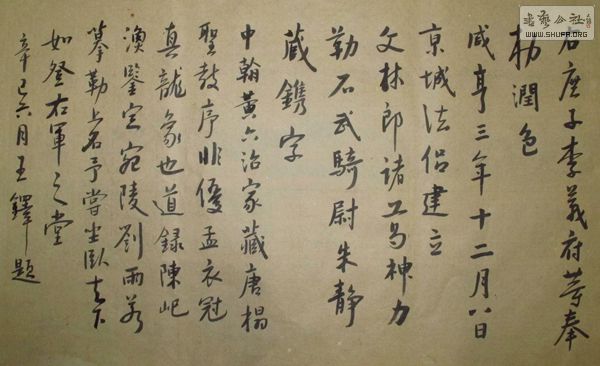 書藝公社
WWW.SHUFR.ORG
右庶子李義府等奉
勑潤色
咸亨三年十二月八日
京城法侶建立
文林郎諸神力
勒石武騎尉朱静
藏鐫字
中翰黄六治家藏唐榻
聖教序非優孟衣冠
真龍象也道録陳屺
渙鑒定宛陵劉雨若
摹勒上石予嘗坐臥其下
如登右軍之堂
辛巳六月王鐸題